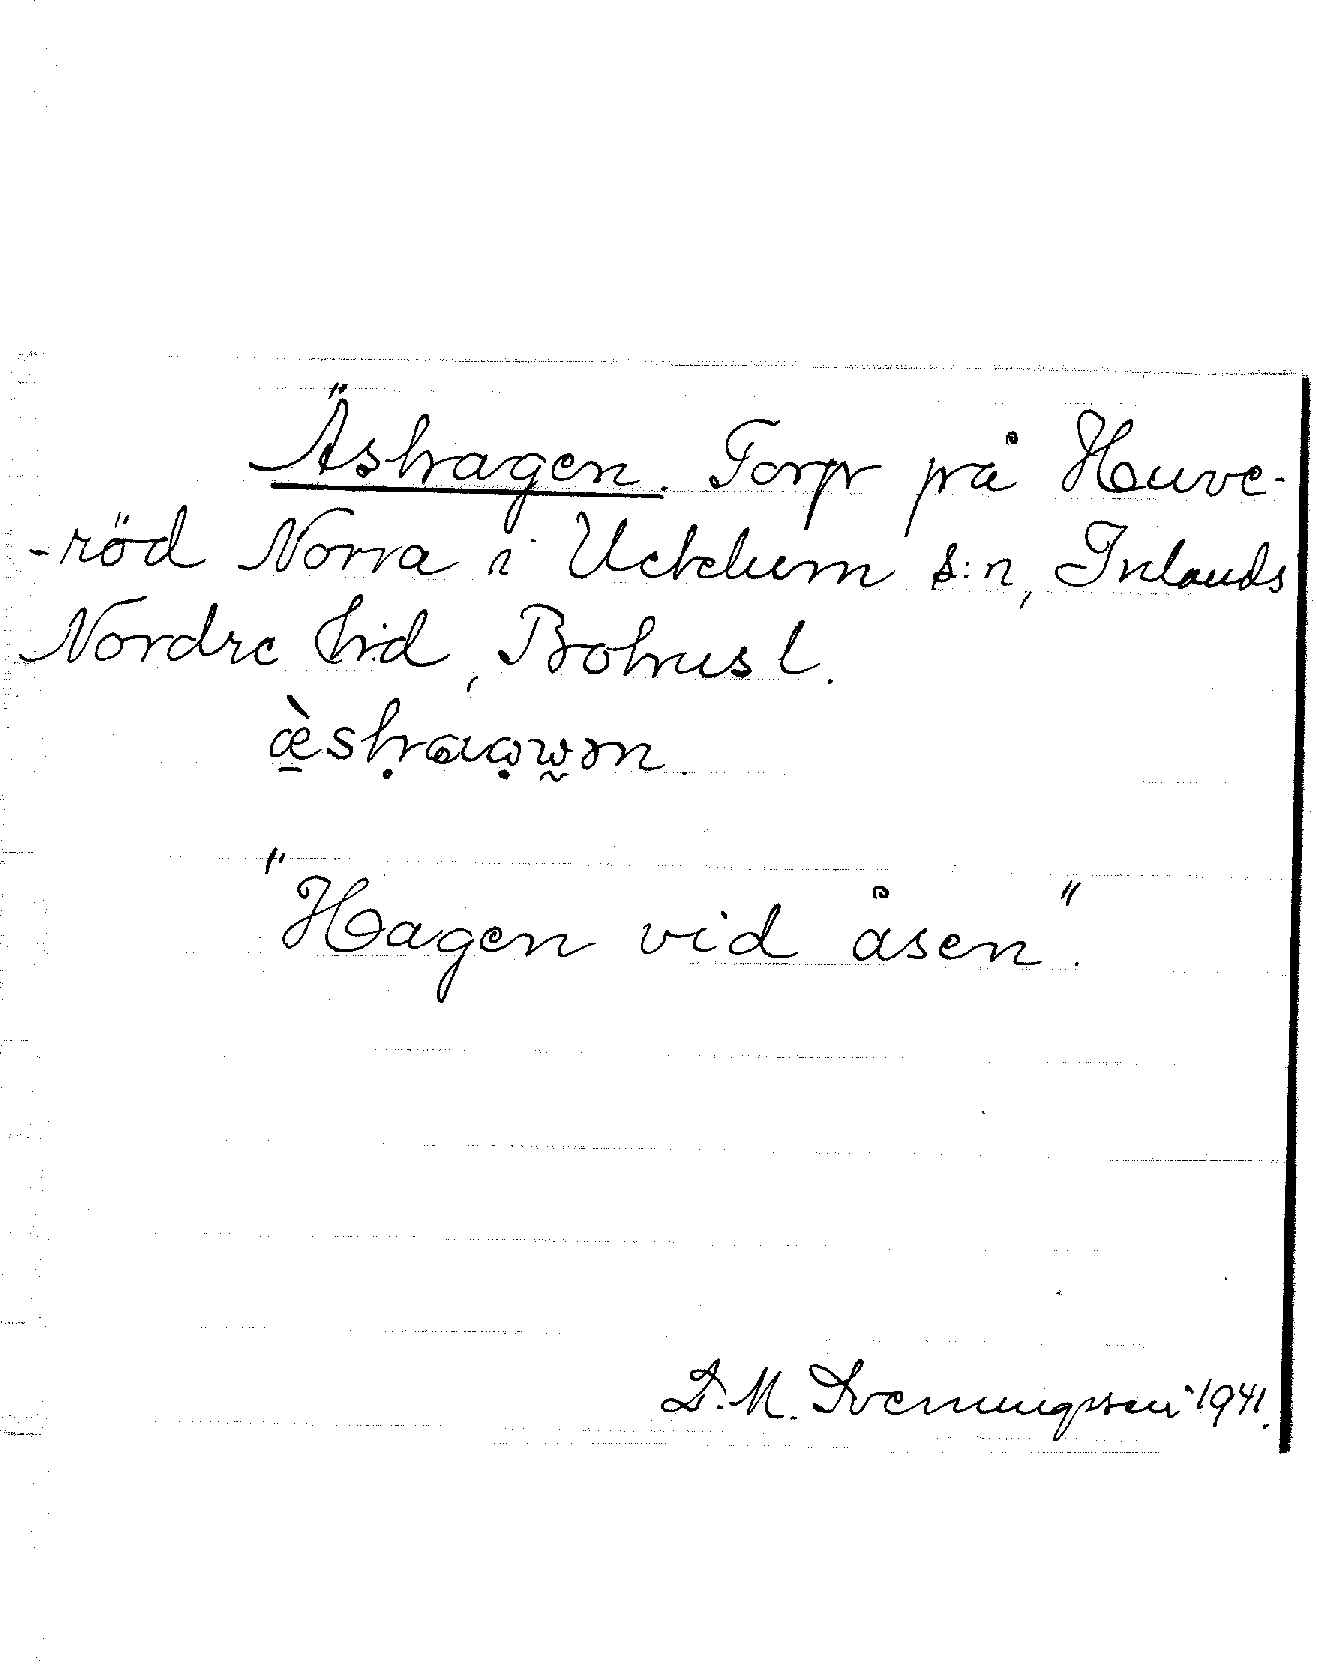 Äshagen. Torp på Huve-
-röd Norra i Ucklum s:n, Inlands
Nordre hd, Bohusl.
"Hagen vid åsen".
D. M. Svenungsson 1941.